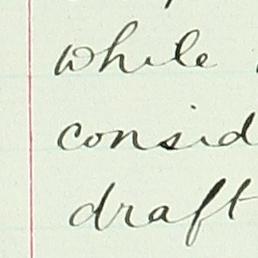 while
consid
draft